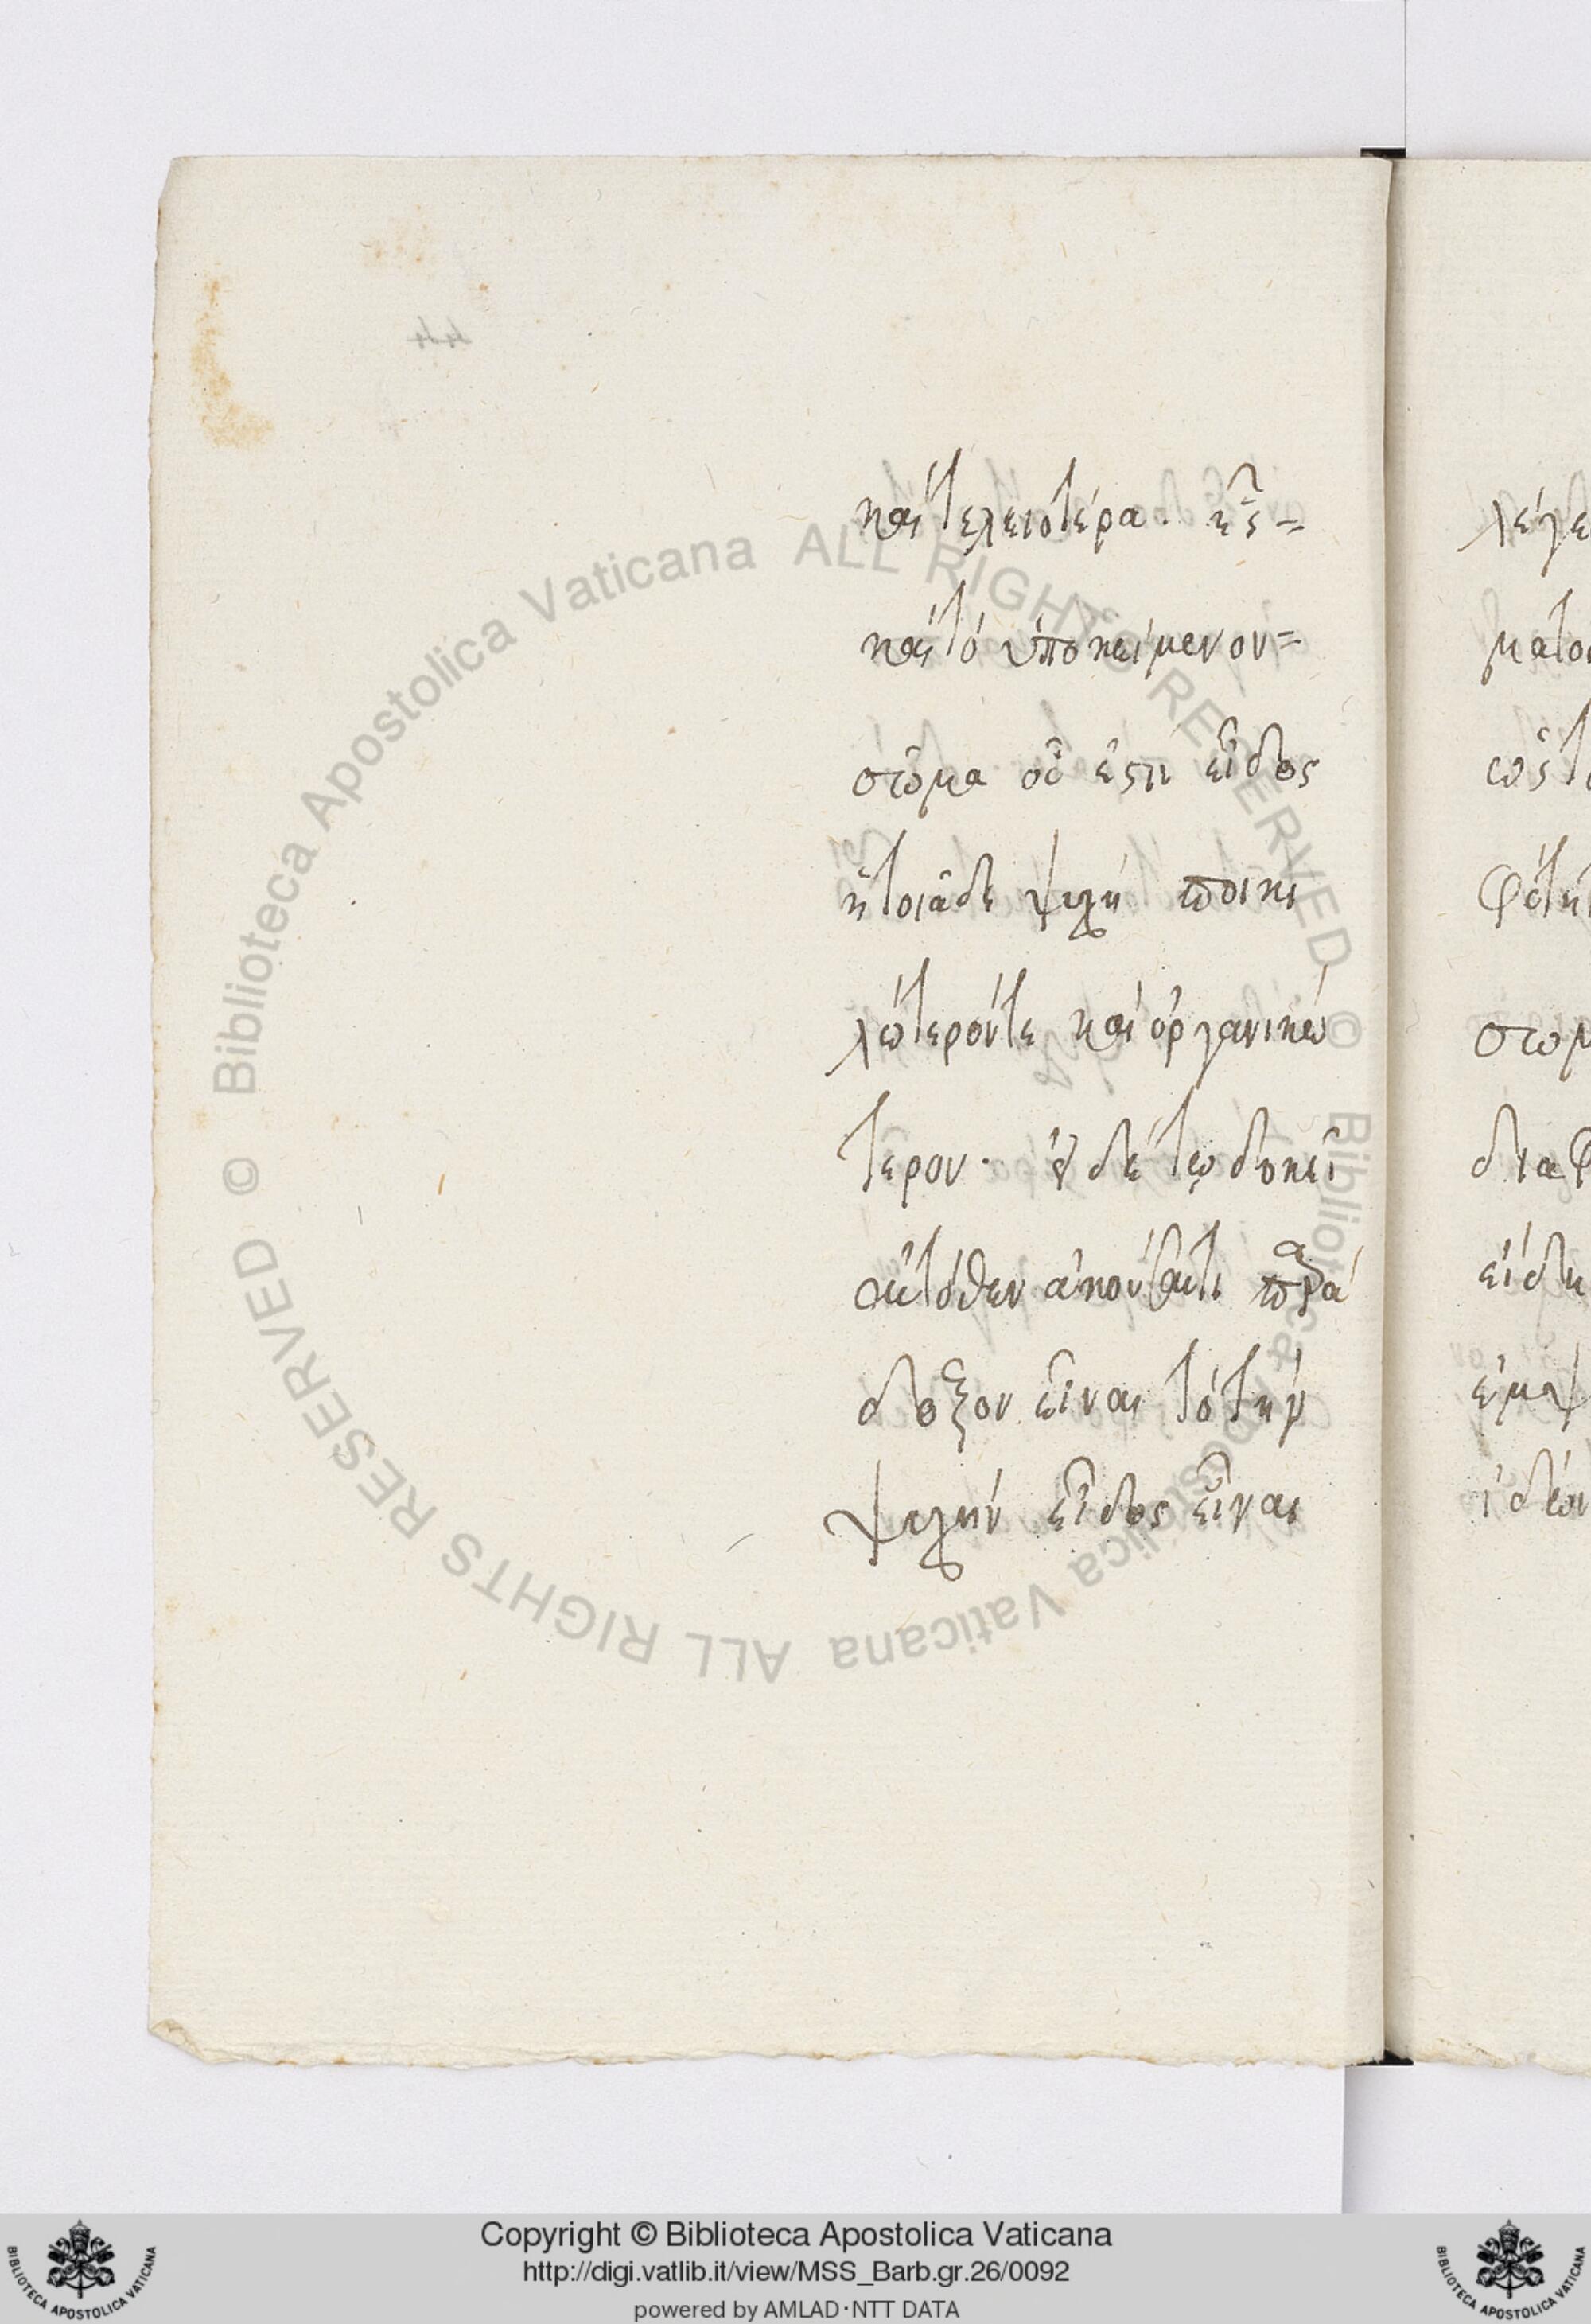 44
καὶ τελειοτέρα. ἧς =
καὶ τὸ ὑποκείμενον =
σῶμα οὗ ἐστι εἶδος
ἡ τοιάδε ψυχή ποικι
λώτερόν τε καὶ ὀργανικώ
τερον. εἰ δέ τῳ δοκεῖ
αὐτόθεν ἀκούσαντι παρά
δοξον εἶναι τὸ τὴν
ψυχὴν εἶδος εἶναι
λέγε
ματο
σωμ
διαφ
εἴδη
ἐμψ
© Biblioteca Apostolica Vaticana ALL RIGHTS RESERVED © Biblioteca Apostolica Vaticana ALL RIGHTS RESERVED
Copyright © Biblioteca Apostolica Vaticana
http://digi.vatlib.it/view/MSS_Barb.gr.26/0092
powered by AMLAD·NTT DATA
BIBLIOTECA APOSTOLICA VATICANA
BIBLIOTECA APOSTOLICA VATICANA